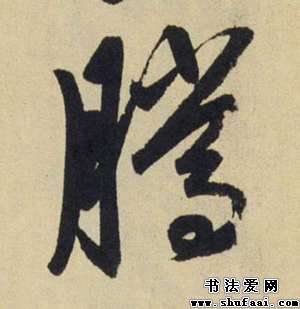 腾
书法爱网
www.shufaai.com